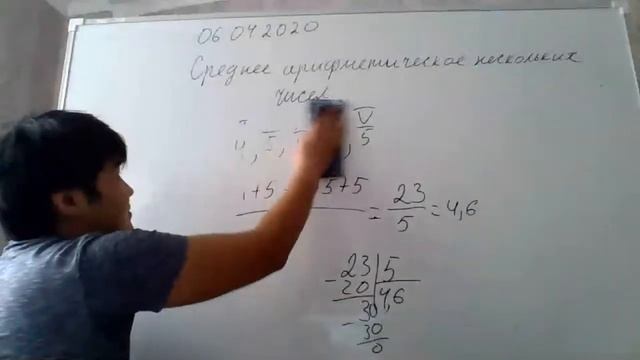 06 04 2020
Среднее арифметическое нескольких
чисел
4, 5, , 5
+5 5+5 = 23/5 = 4,6
23 | 5
- 20 | 4,6
30
- 30
0